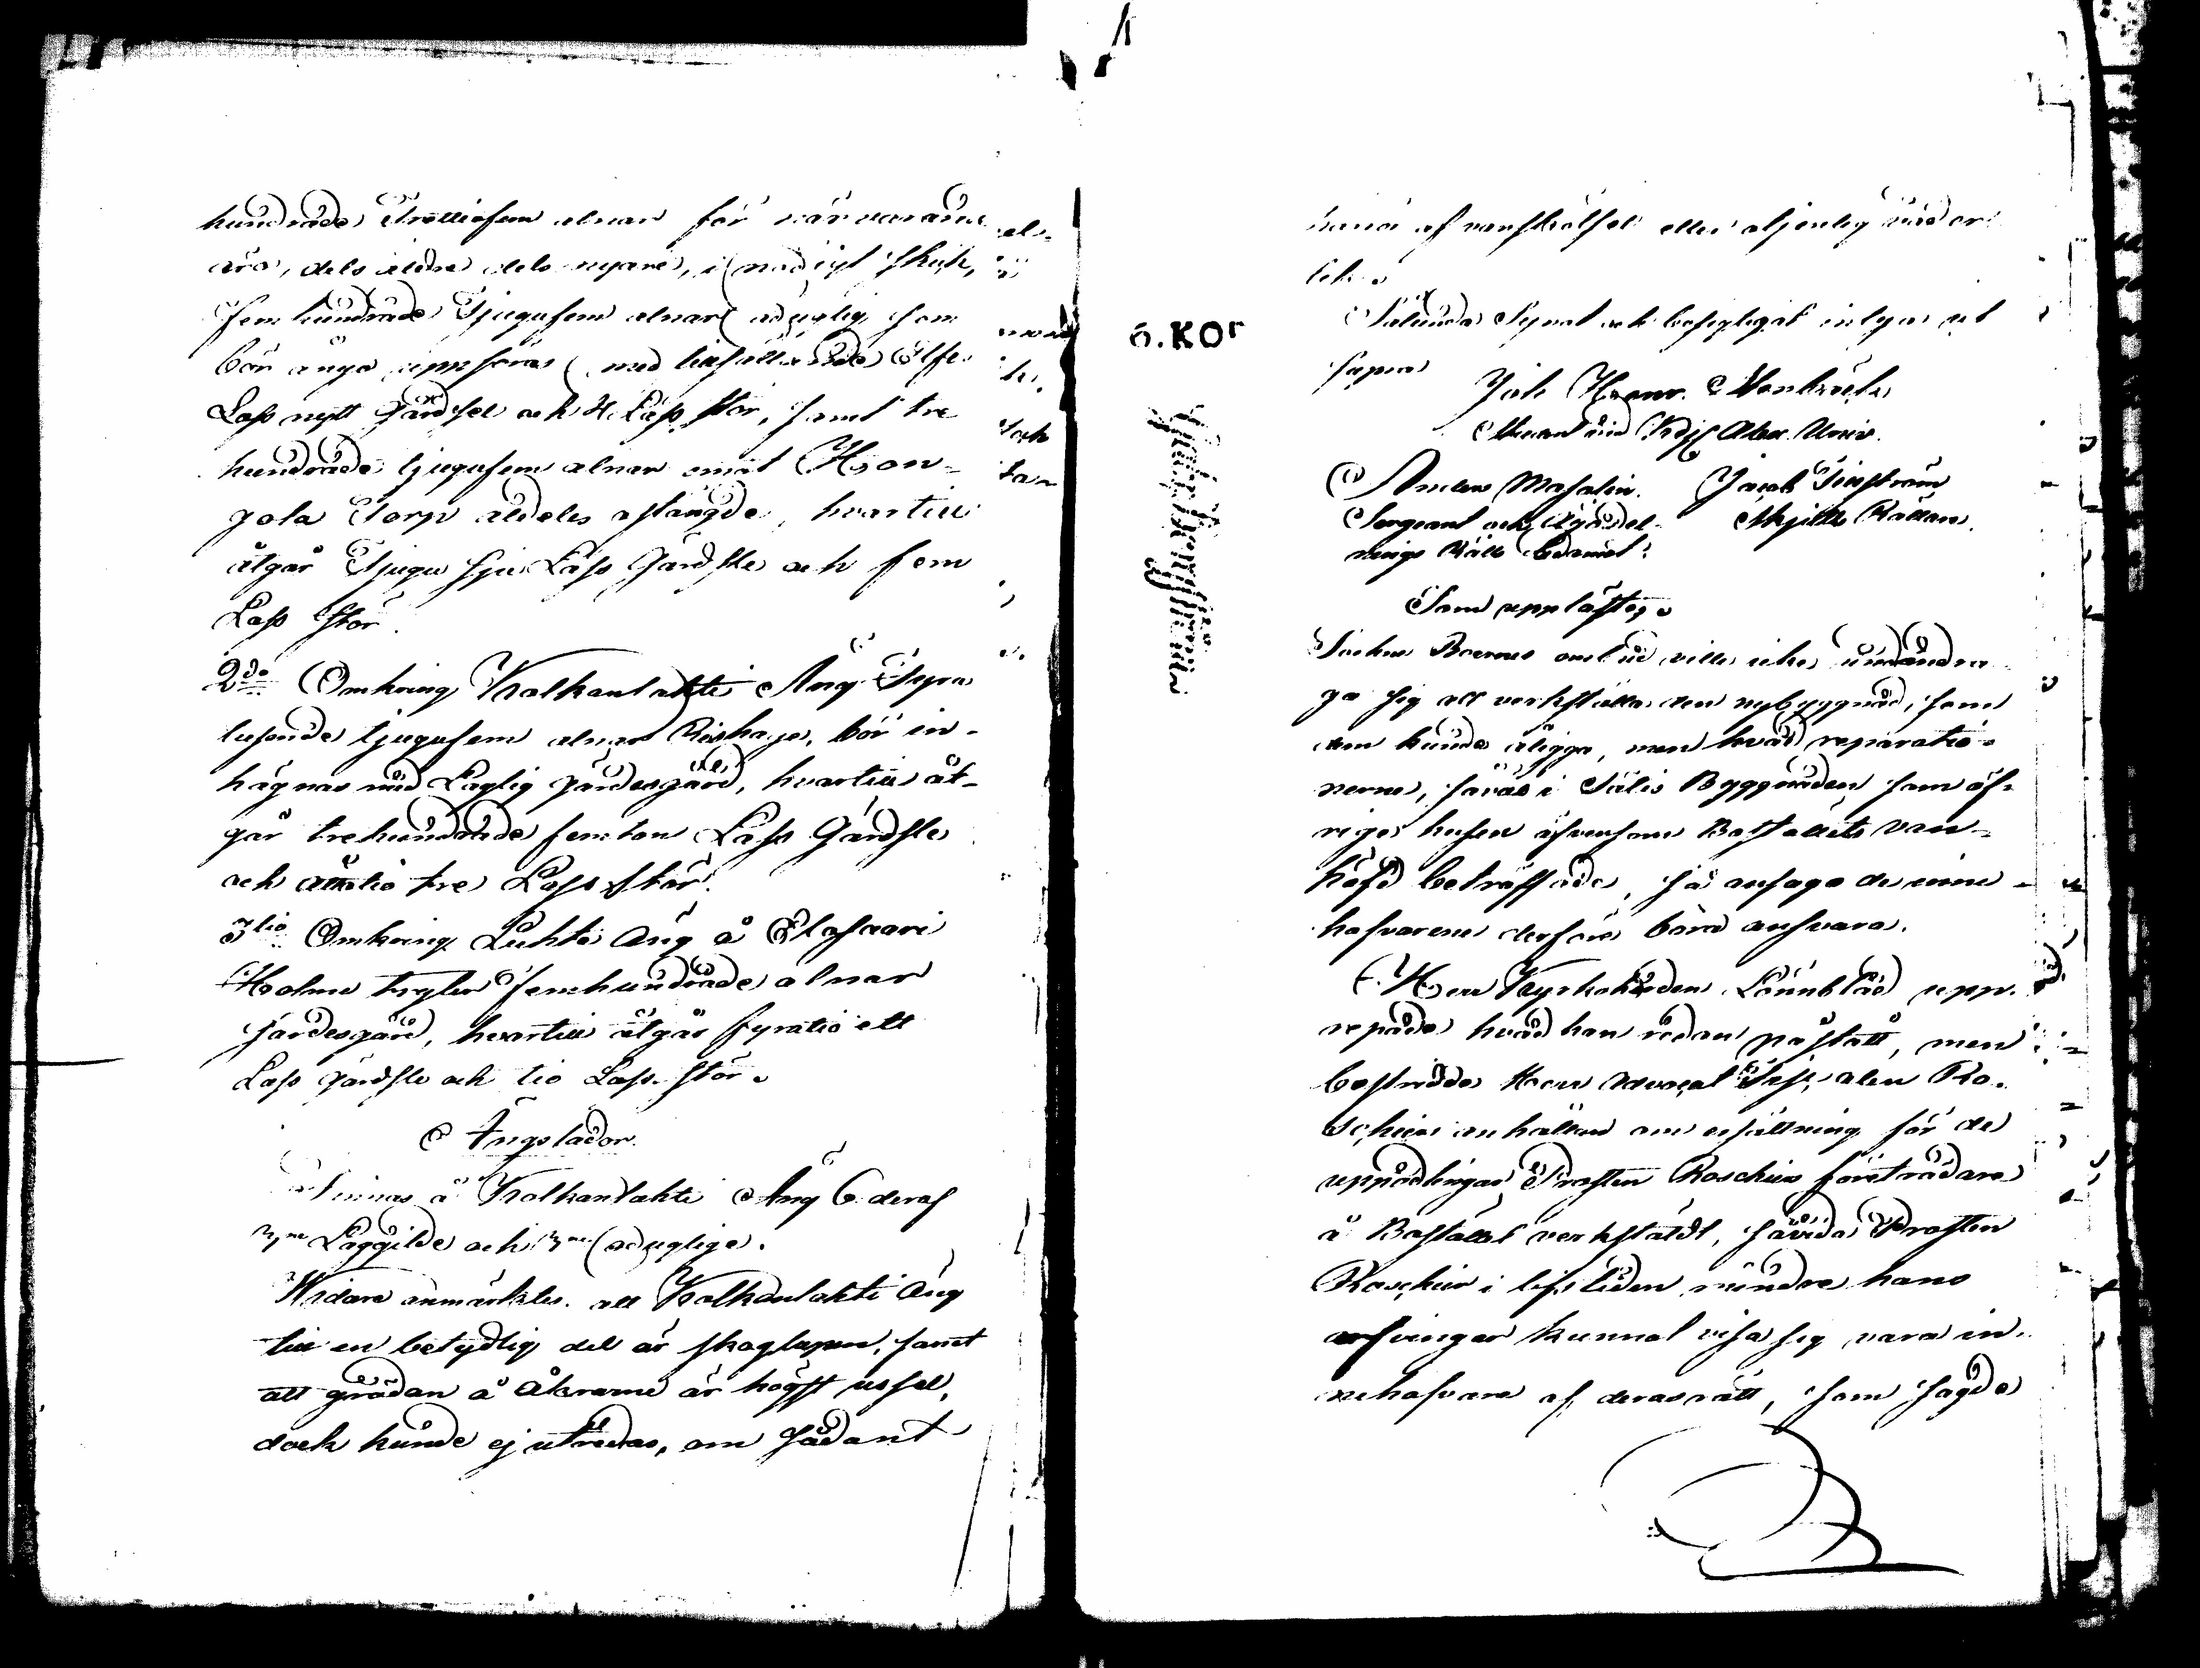 hundrade Trettiofem alnar för närvarande
äro, dels äldre dels nyare, i nödigt skick,
Fem hundrade Tjugufem alnar oduglig som
bör å nyo uppföras med tillsättande Elfva
Lass nytt Gärdsel och 4 Lass stör, samt tre
hundrade tjugufem alnar omot Hon-
gola Torp aldeles ostängde, hvartill
åtgår Tjugu sju Lass Gärdsle och fem
Lass Stör.
2do Omkring Kalkanlakti Äng Fyra
tusende tjugufem alnar Rishage, bör in-
hägnas med Laglig gärdesgård, hvartill åt-
går trehundrade femton Lass Gärdsle
och åttatio tre Lass stör.
3tio Omkring Luhta Äng å
Holme tryter Femhundrade alnar
Gärdesgård, hvartill åtgår fyratio ett
Lass gärdsle och tio Lass stör.
Ängslador.
Finnas å Kalkanlakti Äng 6 deraf
3ne Laggilde och 3ne oduglige.
Widare anmärktes att Kalkanlakti Äng
till en betydlig del är skoglupen, samt
att grödan å Åkrarne är högst ussel,
dock kunde ej utredas, om sådant
af vanskötsel eller otjenlig
Sålunda Synat och besigtigat intyga ut
supra
Joh Henr.
Abo Univ.
Anders Masalin. Jacob
Sergeant och
Som upplästes.
Sockne Boerne omlud ville icke undandra
ga sig att verkställa den nybyggnad, som
dem kunde åligga, men hvad reparatio-
nerne, såväl i Sätis Byggnaden som öf-
rige husen äfvensom Boställets van-
häfd beträffade, så ansågo de inne-
hafvarene derföre böra ansvara.
Herr Kyrkoherden Lönnblad upp-
repade hvad han redan påstått, men
bestridde Herr Advocat Fiscalen Ro-
schiers anhållan om ersättning för de
uppodlingar Prosten Roschiers företrädare
å Bostället verkstäldt, såvida Prosten
Roschier i lifstiden mindre hans
arfvingar kunnat visa sig vara in-
nehafvare af deras rätt, som sagde
Ö.KOr